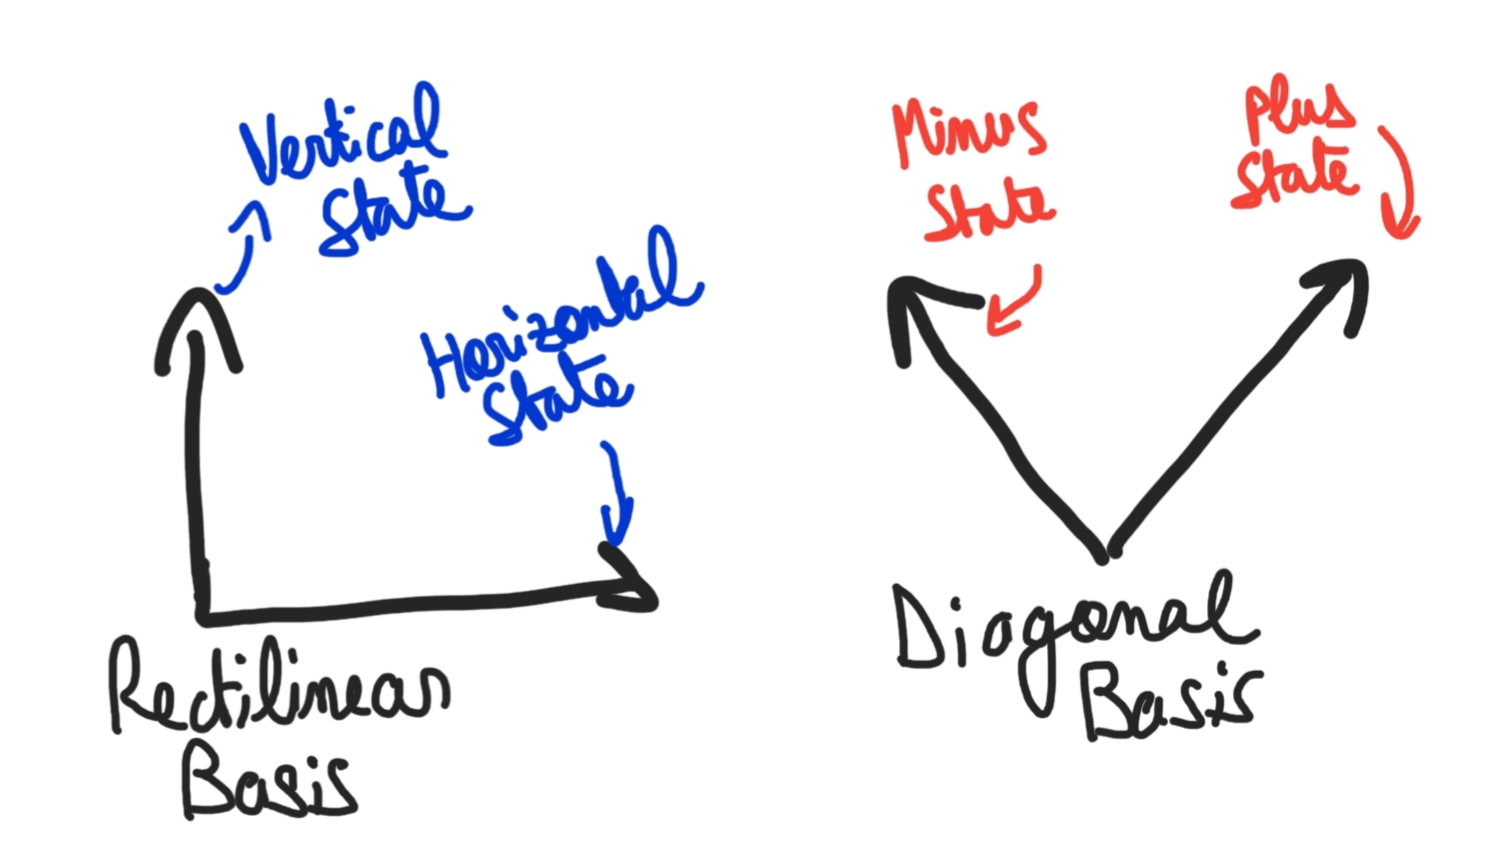 Vertical
State
Horizontal
State
Rectilinear
Basis
Minus
State
Plus
State
Diagonal
Basis